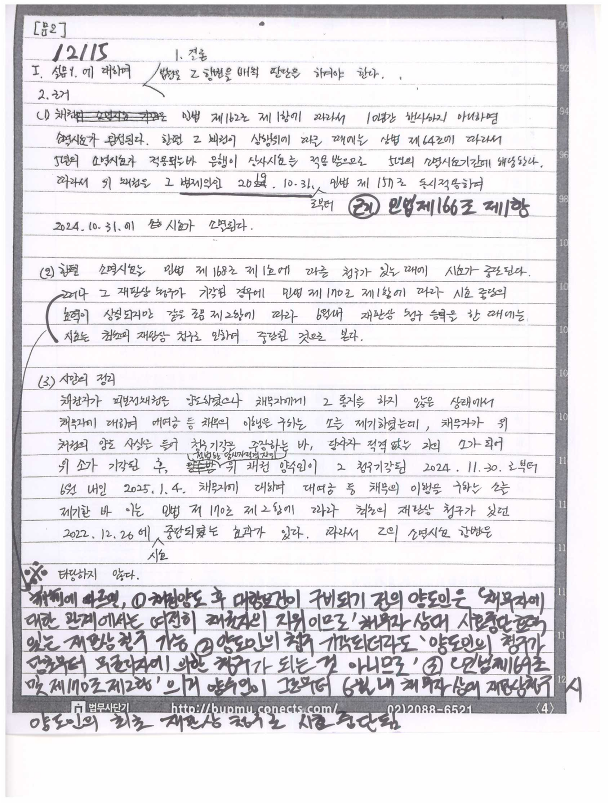 [문2]
12/15
1. 결론
I. 설문1.에 대하여 법원은 Z 항변을 배척 판단을 하여야 한다.
2. 근거
(1) 채권은 민법 제162조 제1항에 따라서 10년간 행사하지 아니하면
소멸시효가 완성된다. 한편 그 채권이 상행위에 따른 때에는 상법 제64조에 따라서
5년의 소멸시효가 적용되는바 은행이 상사시효는 적용 받으므로 5년의 소멸시효기간에 해당한다.
따라서 위 채권은 그 변제기인 2019. 10. 31.로부터 민법 제157조 동시적용하여
근거 민법 제166조 제1항
2024. 10. 31. 에 시효가 소멸된다.
(2) 한편 소멸시효는 민법 제168조 제1호에 따른 청구가 있는 때에 시효가 중단된다.
그러나 그 재판상 청구가 기각된 경우에 민법 제170조 제1항에 따라 시효 중단의
효력이 상실되지만 같은 조 제2항에 따라 6월내 재판상 청구 등을 한 때에는
시효는 최초의 재판상 청구로 인하여 중단된 것으로 본다.
(3) 사안의 정리
채권자가 채권은 양도하였으나 채무자에게 그 통지를 하지 않은 상태에서
채무자에 대하여 대여금 등 채무의 이행을 구하는 소를 제기하였는데, 채무자가 위
채권의 양도 사실을 들어 청구기각을 주장하는 바, 당사자 적격 없는 자의 소가 되어
위 소가 기각된 후, 위 채권 양수인이 그 청구기각된 2024. 11. 30. 로부터
6월 내인 2025. 1. 4. 채무자에 대하여 대여금 등 채무의 이행을 구하는 소를
제기한 바 이는 민법 제170조 제2항에 따라 최초의 재판상 청구가 있던
2022. 12. 26에 시효 중단되었는 효과가 있다. 따라서 Z의 소멸시효 항변은
타당하지 않다.
※ 판례에 따르면, ① 채권양도 후 대항요건이 구비되기 전의 양도인은 '채무자에
대한 관계에서는 여전히 채권자의 지위이므로' 채무자 상대 시효중단효력
있는 재판상청구 가능 ② 양도인의 청구 기각되더라도 '양도인의 청구가
당초부터 무권리자에 의한 청구가 되는 것 아니므로' ③ '민법 제169조
및 제170조 제2항'의거 양수인이 그로부터 6월 내 채무자 상대 재판상청구 시
양도인의 최초 재판상 청구로 시효 중단됨
법무사단기 http://bupmu.conects.com/ 02)2088-6521 〈4〉